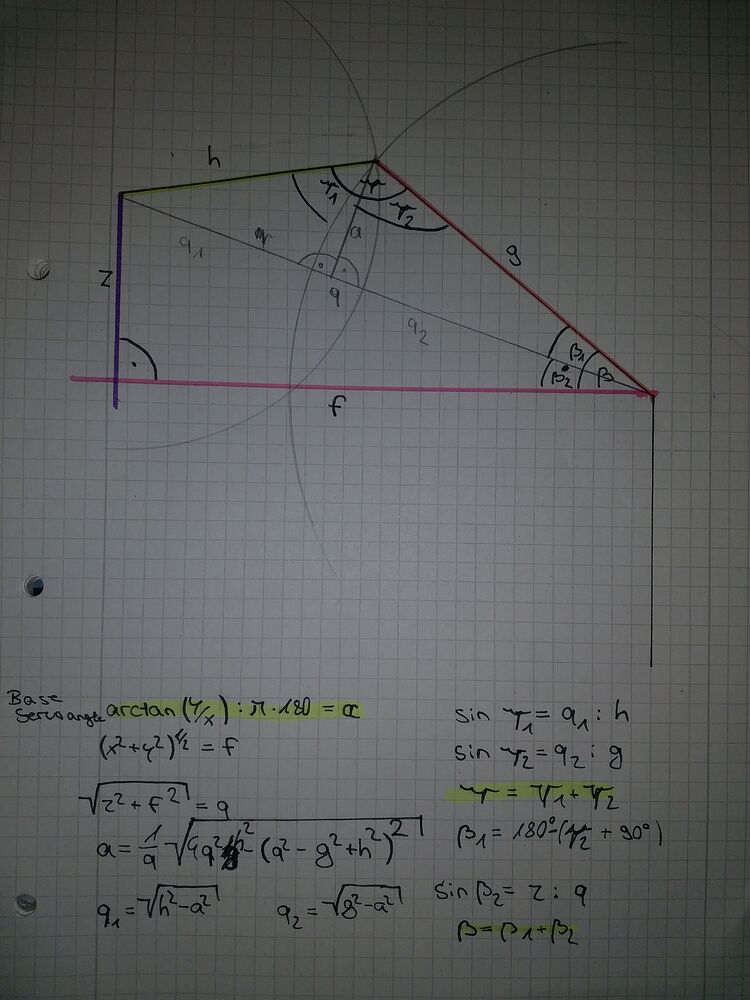 h
γ1 γ γ2
a
g
q1
q
q2
z
β1
β2 β
f
Base
Servoangle arctan (y/x) : π · 180 = α
(x²+y²)^1/2 = f
√z² + f² = q
a = 1/q √4q²h² - (q² - g² + h²)²
q1 = √h² - a² q2 = √g² - a²
sin γ1 = q1 : h
sin γ2 = q2 : g
γ = γ1 + γ2
β1 = 180° - (γ2 + 90°)
sin β2 = z : q
β = β1 + β2